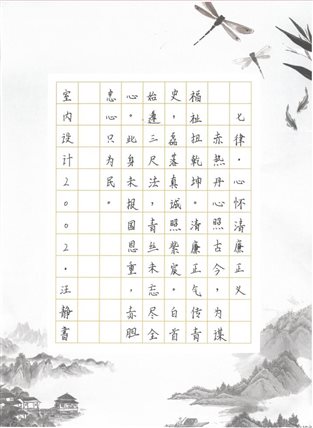 七律·心怀清廉正义
赤热丹心照古今,为谋
福祉扭乾坤。清廉正气传青
史,磊落真诚照紫宸。白首
始遵三尺法,青丝未忘尽全
心。此身未报国恩重,赤胆
忠心只为民。
室内设计2002·汪静书